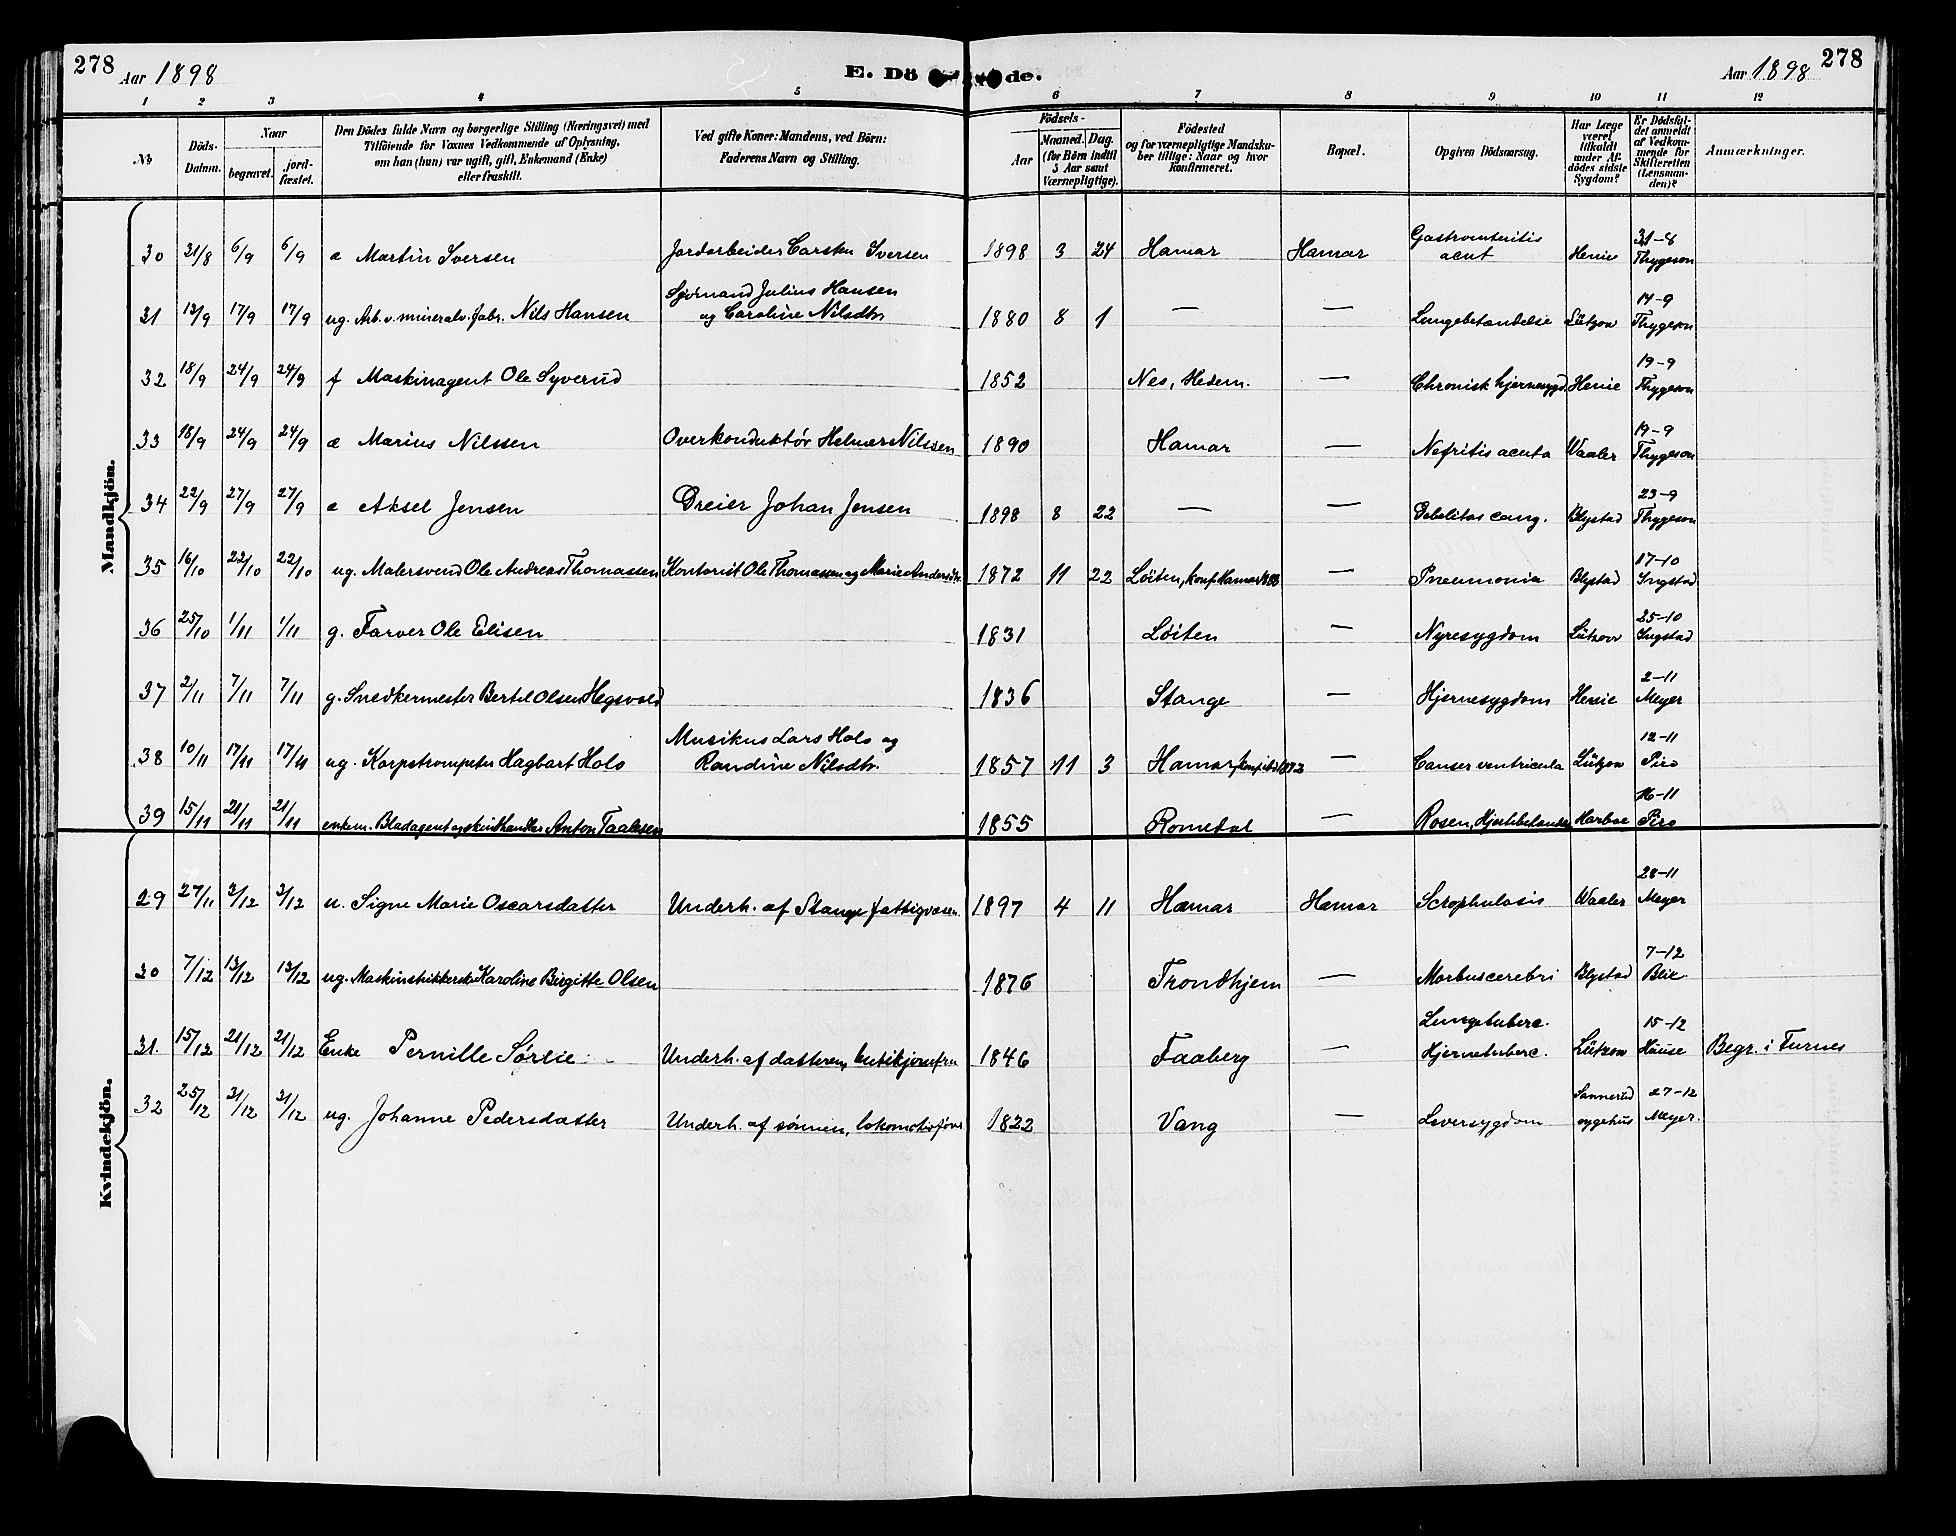 278 Aar 1898 E. Dö de. Aar 1898 278
1 2 3 4 5 6 7 8 9 10 11 12
No Döds-Datum. Naar begravet. jord-fæstet. Den Dödes fulde Navn og borgerlige Stilling (Næringsvei) med Tilföiende for Voxnes Vedkommende af Oplysning, om han (hun) var ugift, gift, Enkemand (Enke) eller fraskilt. Ved gifte Koner: Mandens, ved Börn: Faderens Navn og Stilling. Födsels- Aar Maaned. Dag. (for Börn indtil 5 Aar samt Værnepligtige). Födested og for værnepligtige Mandskaber tillige: Naar og hvor Konfirmeret. Bopæl. Opgiven Dödsaarsag. Har Læge været tilkaldt under Afdödes sidste Sygdom? Er Dödsfaldet anmeldt af Vedkommende for Skifteretten (Lensmanden)? Anmærkninger.
Mandkjön.
30 31/8 6/9 6/9 æ Martin Iversen Jordarbeider Carsten Iversen 1898 3 24 Hamar Hamar Gastroenteritis acut Henie 31-8 Thygeson
31 13/9 17/9 17/9 ug. Arb. v. mineralv. fabr. Nils Hansen Sjømand Julius Hansen og Caroline Nilsdtr 1880 8 1 — — Lungebetændelse Lützow 14-9 Thygeson
32 18/9 24/9 24/9 f Maskinagent Ole Syverud 1852 Nes, Hedem. — Chronisk hjernesygd. Henie 19-9 Thygeson
33 18/9 24/9 24/9 æ Marius Nilssen Overkonduktør Helmer Nilssen 1890 Hamar — Nefritis acuta Waaler 19-9 Thygeson
34 22/9 27/9 27/9 æ Aksel Jensen Dreier Johan Jensen 1898 8 22 — — Debelitas cong. Blystad 23-9 Thygeson
35 16/10 22/10 22/10 ug. Malersvend Ole Andreas Thomassen Kontorist Ole Thomassen og Marie Andersdtr. 1872 11 22 Løiten, konf. Hamar — Pneumonia Blystad 17-10 Ingstad
36 25/10 1/11 1/11 g. Farver Ole Elisen 1831 Løiten — Nyresygdom Lützow 25-10 Ingstad
37 2/11 7/11 7/11 g. Snedkermester Bertel Olsen Hegsvold 1836 Stange — Hjernesygdom Henie 2-11 Meyer
38 10/11 17/11 17/11 ug. Korpstrompeter Hagbart Hols Musikus Lars Hols og Randine Nilsdtr. 1857 11 3 Hamar, konf. 1872 — Canser ventricula Lützow 12-11 Piro
39 15/11 21/11 21/11 enkem. Bladagent og skindhandler Anton Taalesen 1855 Romedal — Rosen, Hjertebetændelse Harboe 16-11 Piro
Kvindekjön.
29 27/11 3/12 3/12 u. Signe Marie Oscarsdatter Underh. af Stange fattigvæsen. 1897 4 11 Hamar Hamar Scrophulosis Waaler 28-11 Meyer
30 7/12 13/12 13/12 ug. Maskinstrikkerske Karoline Birgitte Olsen 1876 Trondhjem — Morbus cerebri Blystad 7-12 Blix
31. 15/12 21/12 21/12 Enke Pernille Sørlie Underh. af datteren, butikjomfru 1846 Faaberg — Lungetuberc. Hjernetuberc. Lützow 15-12 Hause Begr. i Furnes
32 25/12 31/12 31/12 ug. Johanne Pedersdatter Underh. af sønnen, lokomotivfører 1822 Vang — Leversygdom Sannerud sygehus 27-12 Meyer.